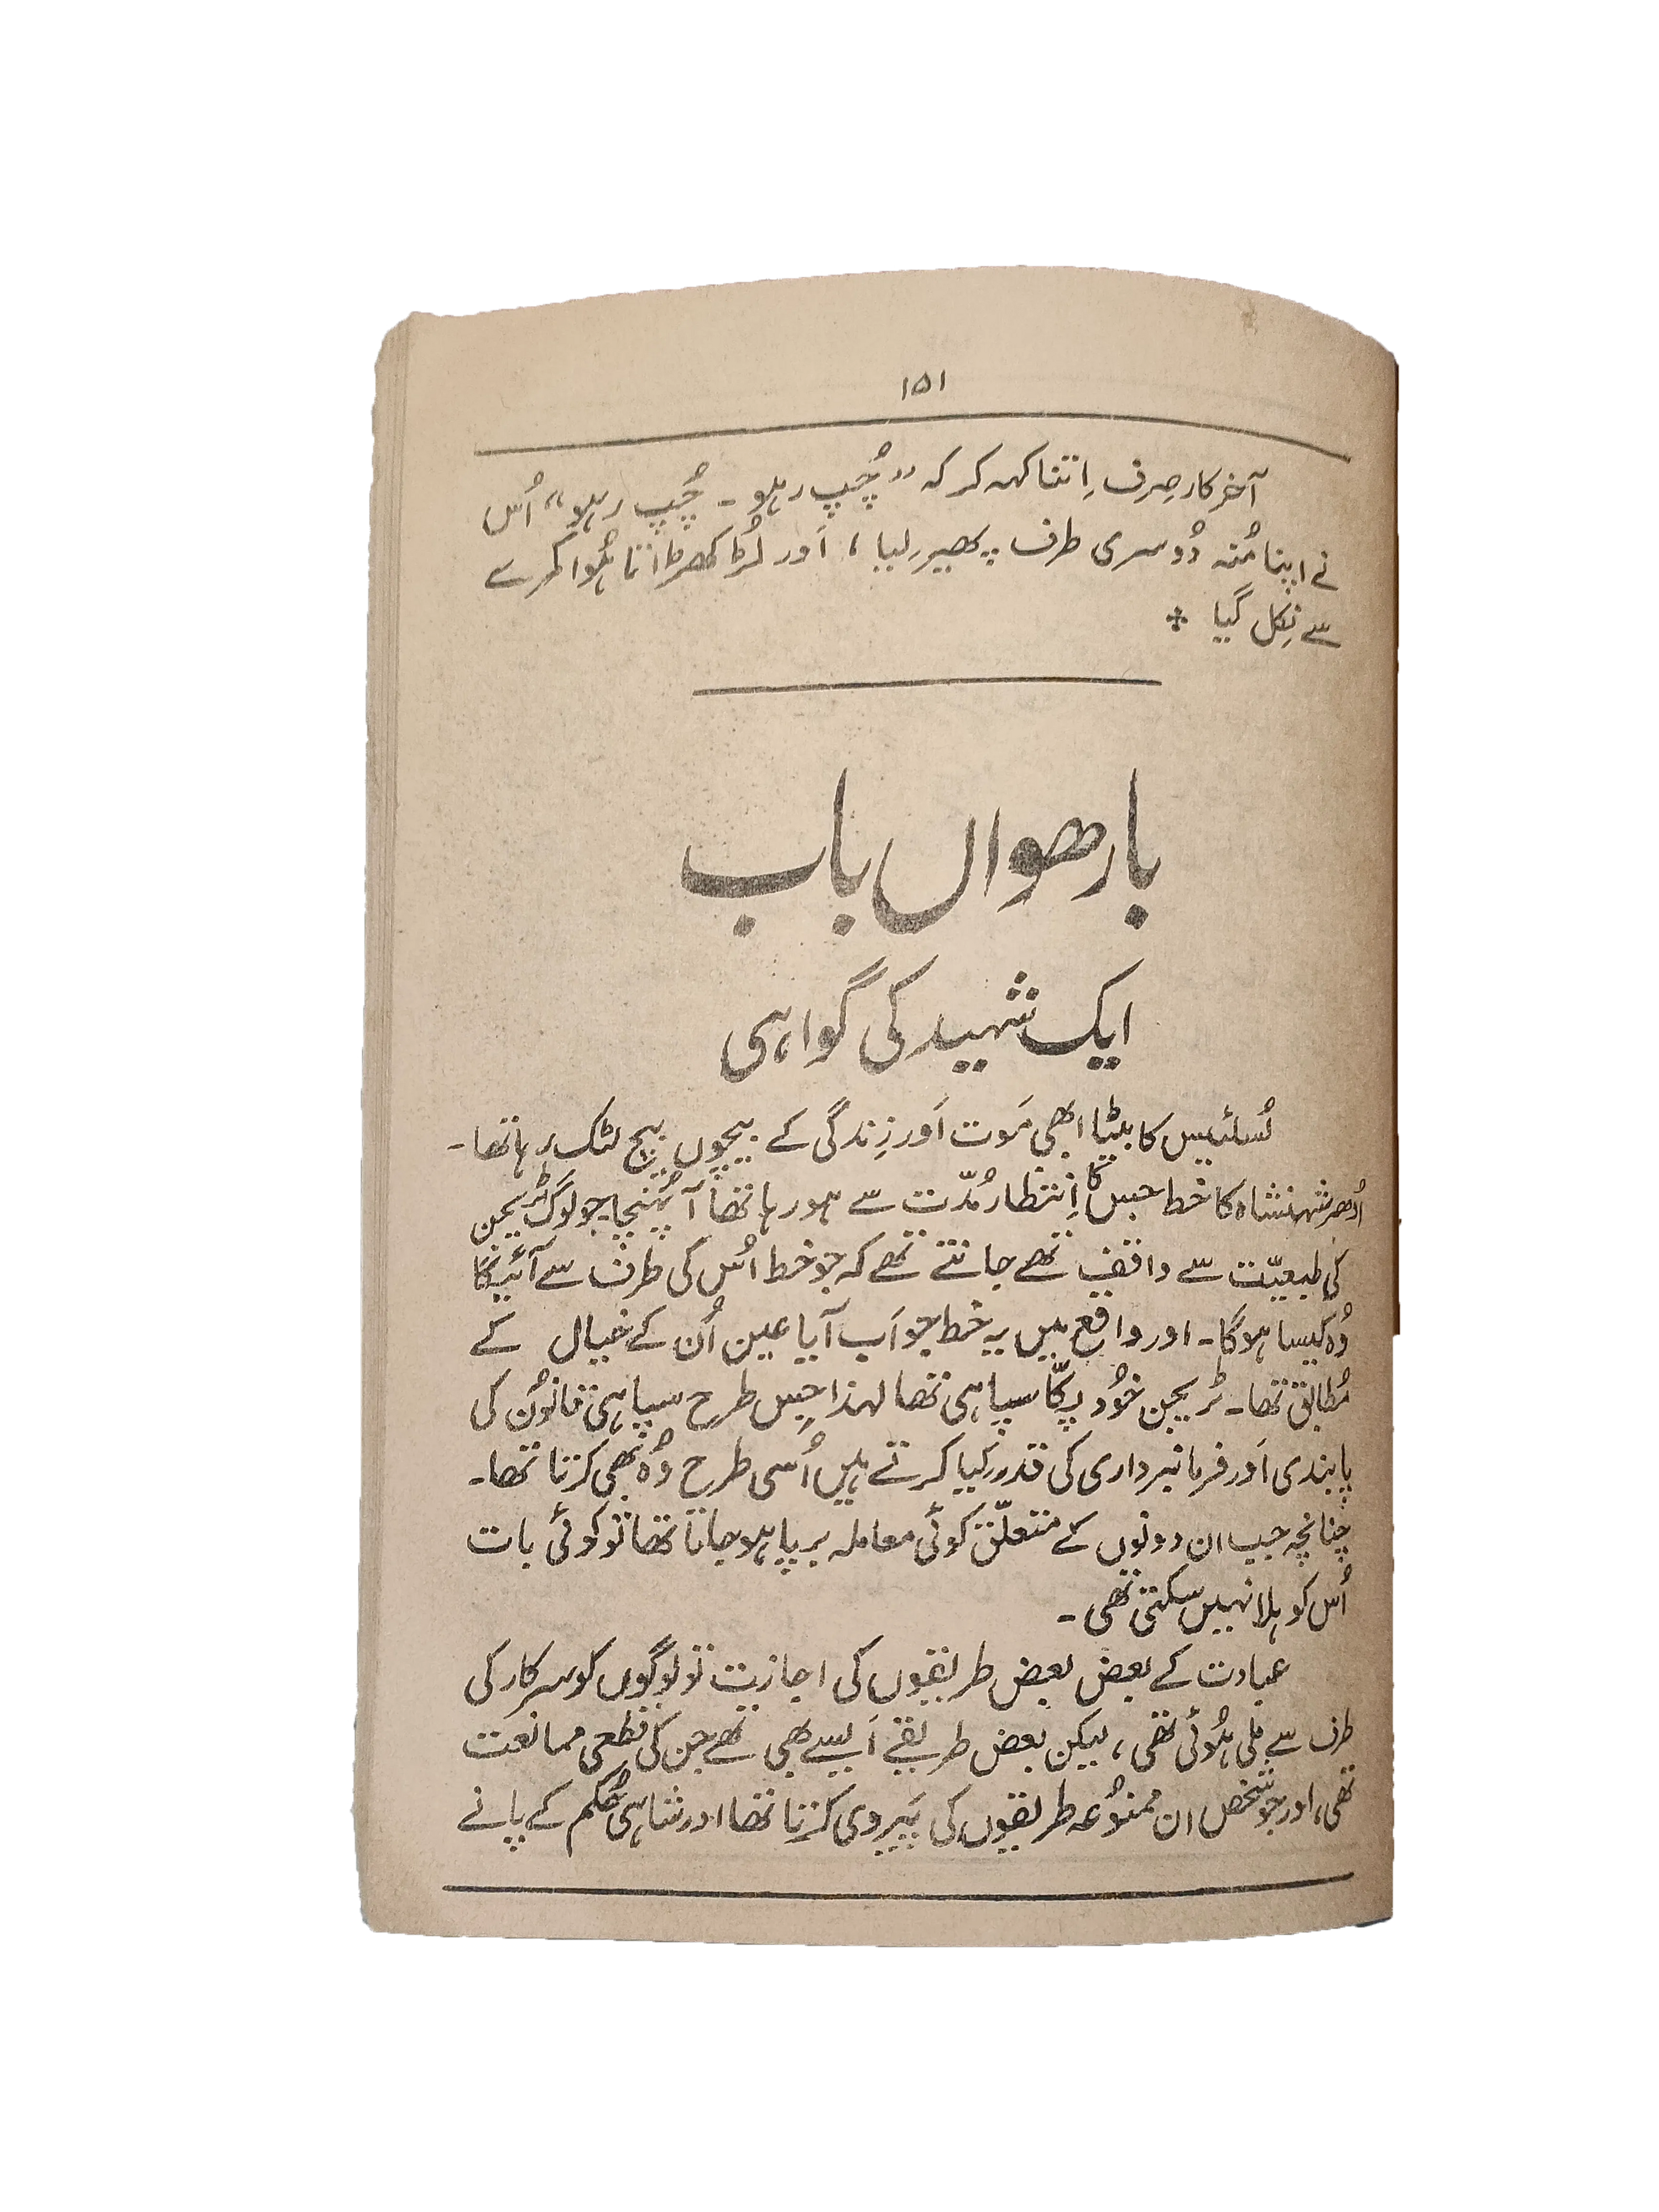 ۱۵۱
آخرکار صِرف اِتنا کہہ کر کہ ”چُپ رہو۔ چُپ رہو“ اُس
نے اپنا مُنہ دُوسری طرف پھیر لیا، اَور لڑکھڑاتا ہُوا کمرے
سے نِکل گیا ❖
بارھواں باب
ایک شہید کی گواہی
کا بیٹا ابھی مَوت اَور زِندگی کے بیچوں بیچ لٹک رہا تھا۔
اُدھر شہنشاہ کا خط جِس کا اِنتظار مُدّت سے ہو رہا تھا آ پُہنچا۔ جو لوگ ٹریجن
کی طبیعّت سے واقف تھے جانتے تھے کہ جو خط اُس کی طرف سے آئیگا
وُہ کیسا ہوگا۔ اور واقع میں یہ خط جو اَب آیا عین اُن کے خیال کے
مُطابق تھا۔ ٹریجن خُود پکّا سپاہی تھا لہذا جِس طرح سپاہی قانُون کی
پابندی اَور فرمانبرداری کی قدر کیا کرتے ہیں اُسی طرح وُہ بھی کرتا تھا۔
چنانچہ جب ان دونوں کے متعلّق کوئی معاملہ برپا ہو جاتا تھا تو کوئی بات
اُس کو ہلا نہیں سکتی تھی۔
عبادت کے بعض بعض طریقوں کی اجازت تو لوگوں کو سرکار کی
طرف سے ملی ہُوئی تھی، لیکن بعض طریقے اَیسے بھی تھے جن کی قطعی ممانعت
تھی، اور جو شخص ان ممنُوعہ طریقوں کی پَیروی کرتا تھا اور شاہی حُکم کے پانے